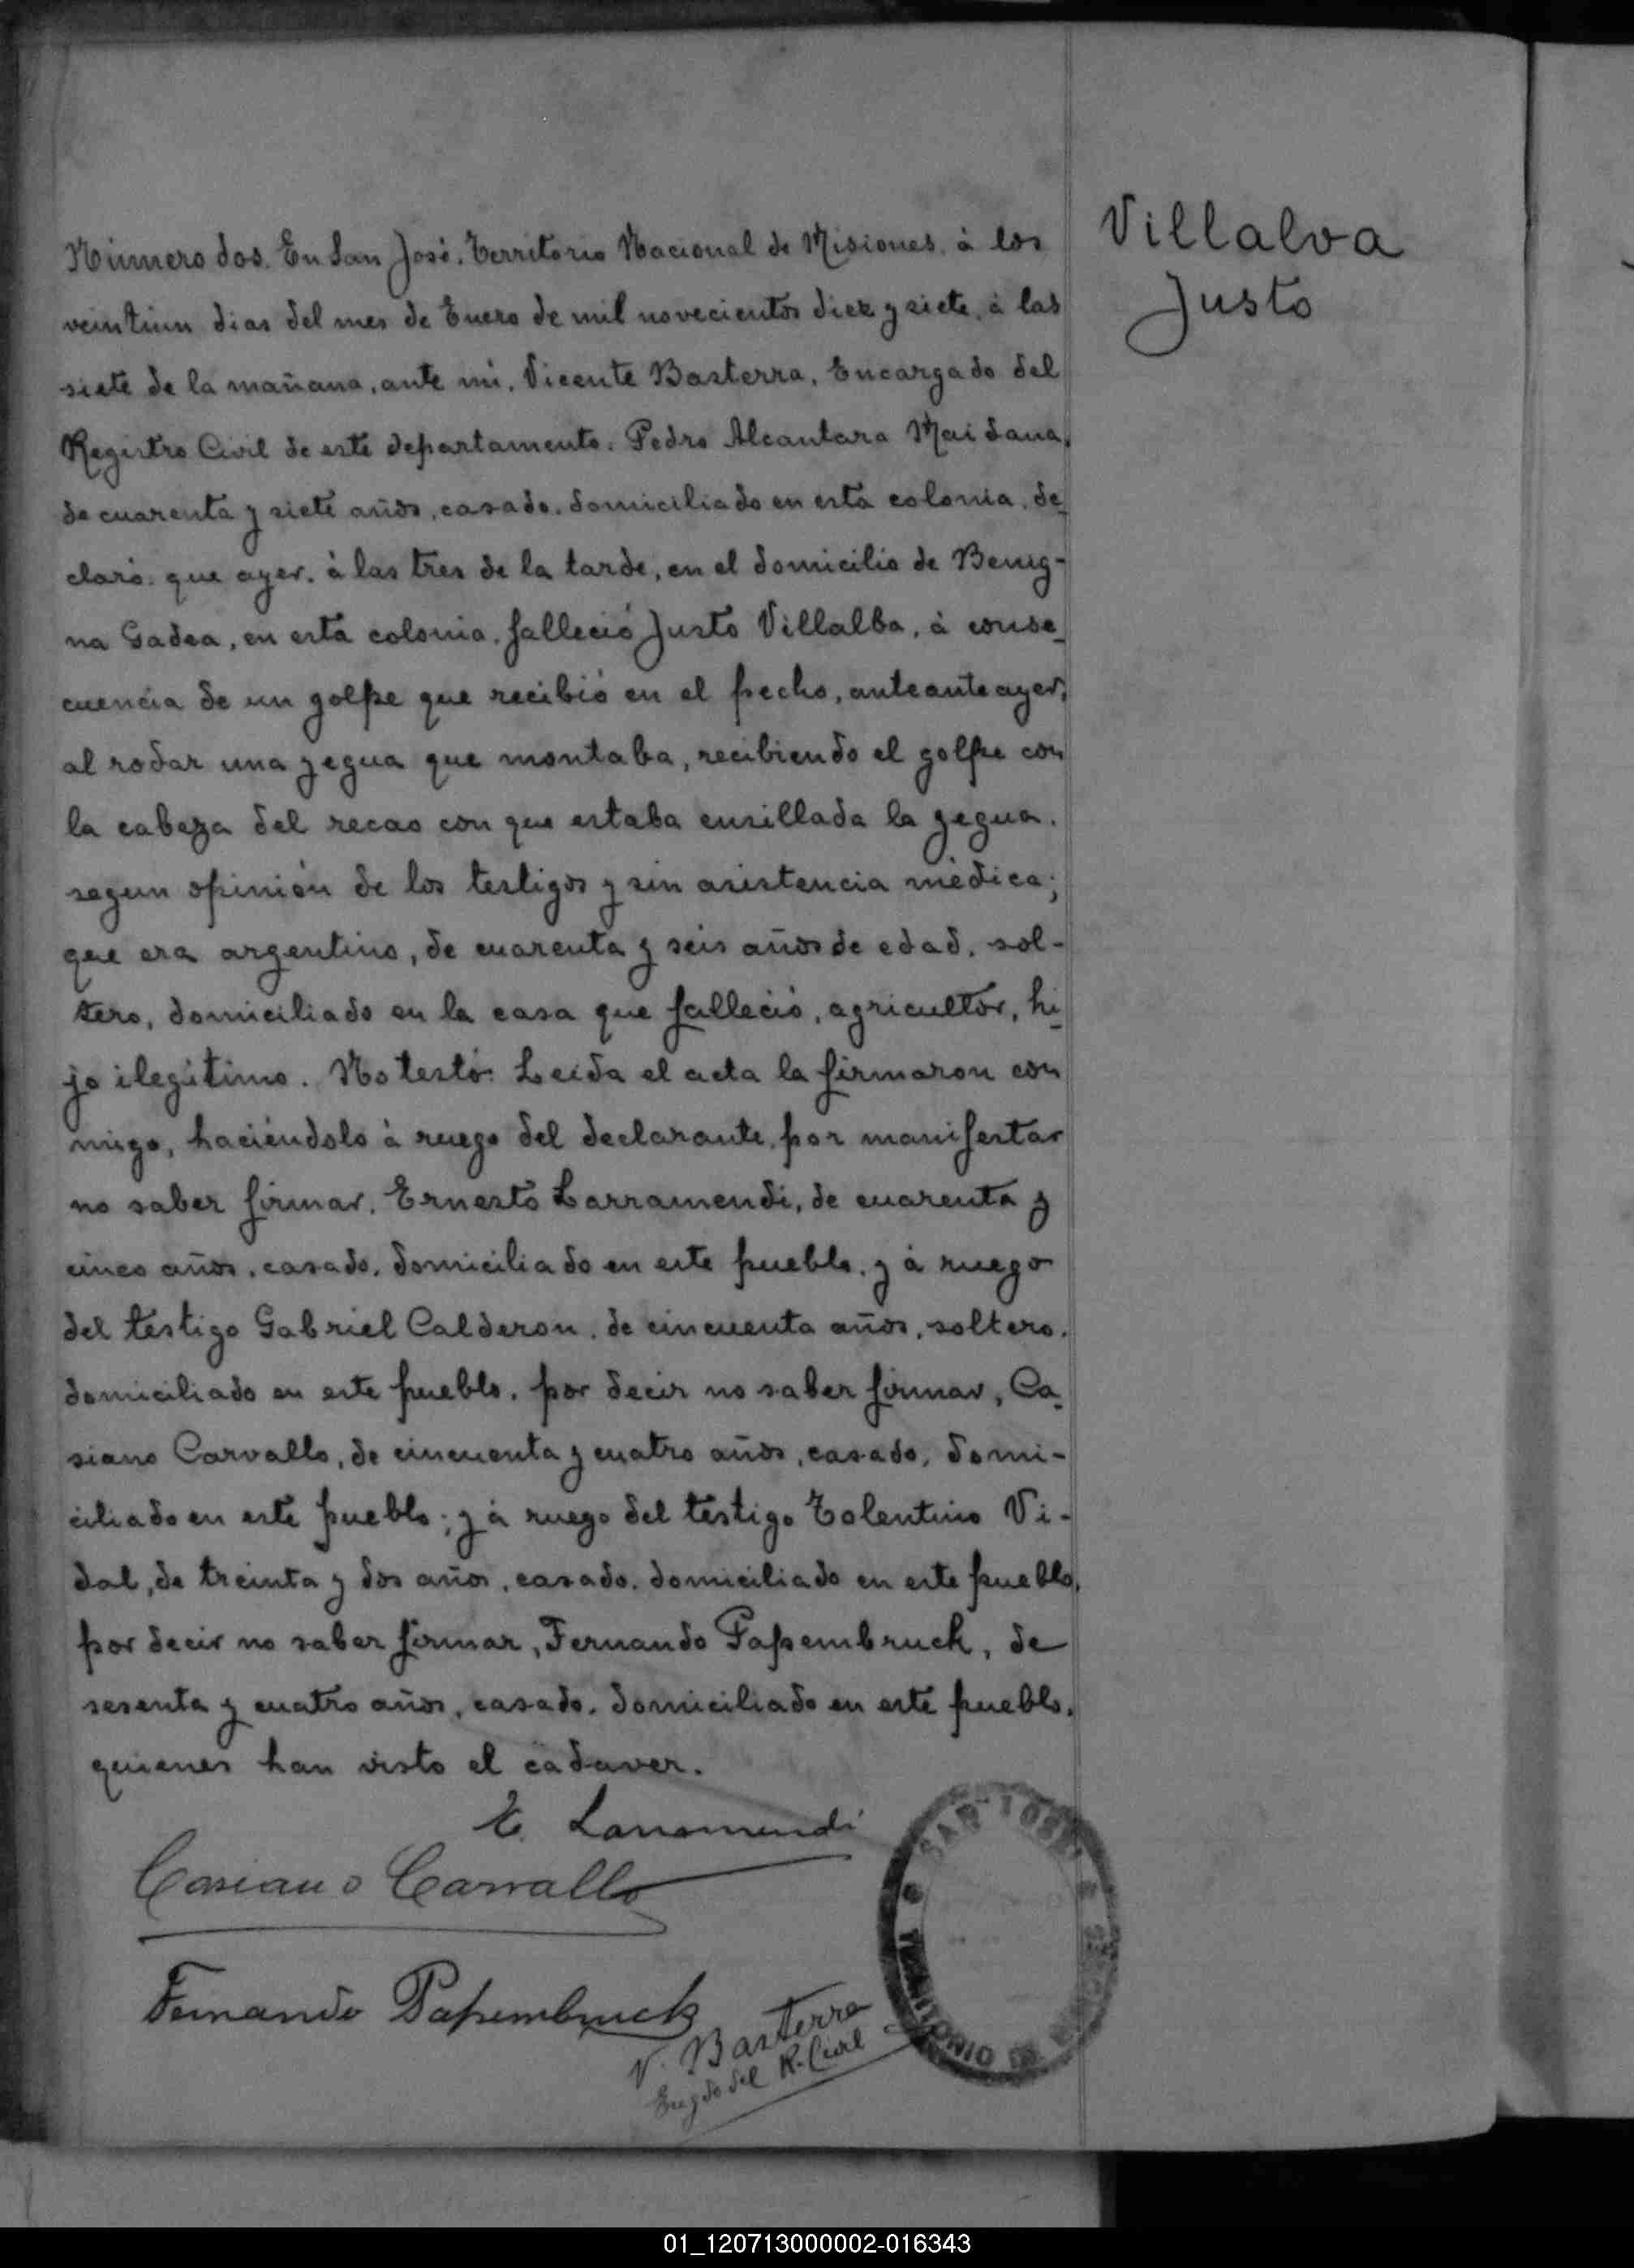 Villalva
Justo
Número dos. En San José. Territorio Nacional de Misiones, à los
veintiun dias del mes de Enero de mil novecientos diez y siete, à las
siete de la mañana, ante mi, Vicente Basterra, Encargado del
Registro Civil de este departamento. Pedro Alcantara Maidana,
de cuarenta y siete años, casado, domiciliado en esta colonia, de
claró: que ayer, à las tres de la tarde, en el domicilio de Benig-
na Gadea, en esta colonia, falleció Justo Villalba, à conse
cuencia de un golpe que recibió en el pecho, anteanteayer,
al rodar una yegua que montaba, recibiendo el golpe con
la cabeza del recao con que estaba ensillada la yegua,
segun opinión de los testigos y sin asistencia mèdica;
que era argentino, de cuarenta y seis años de edad, sol-
tero, domiciliado en la casa que falleció, agricultor, hi
jo ilegítimo. No testó. Leida el acta la firmaron con
migo, haciéndolo à ruego del declarante, por manifestar
no saber firmar, Ernesto Larramendi, de cuarenta y
cinco años, casado, domiciliado en este pueblo, y à ruego
del testigo Gabriel Calderon, de cincuenta años, soltero,
domiciliado en este pueblo, por decir no saber firmar, Ca
siano Carvallo, de cincuenta y cuatro años, casado, domi-
ciliado en este pueblo; y à ruego del testigo Tolentino Vi-
dal, de treinta y dos años, casado, domiciliado en este pueblo,
por decir no saber firmar, Fernando Papembruck, de
sesenta y cuatro años, casado, domiciliado en este pueblo,
quienes han visto el cadaver.
E. Larramendi
Casiano Carvallo
Fernando Papembruck
V. Basterra
Engdo del R. Civil
SAN JOSE
TERRITORIO DE
01_120713000002-016343